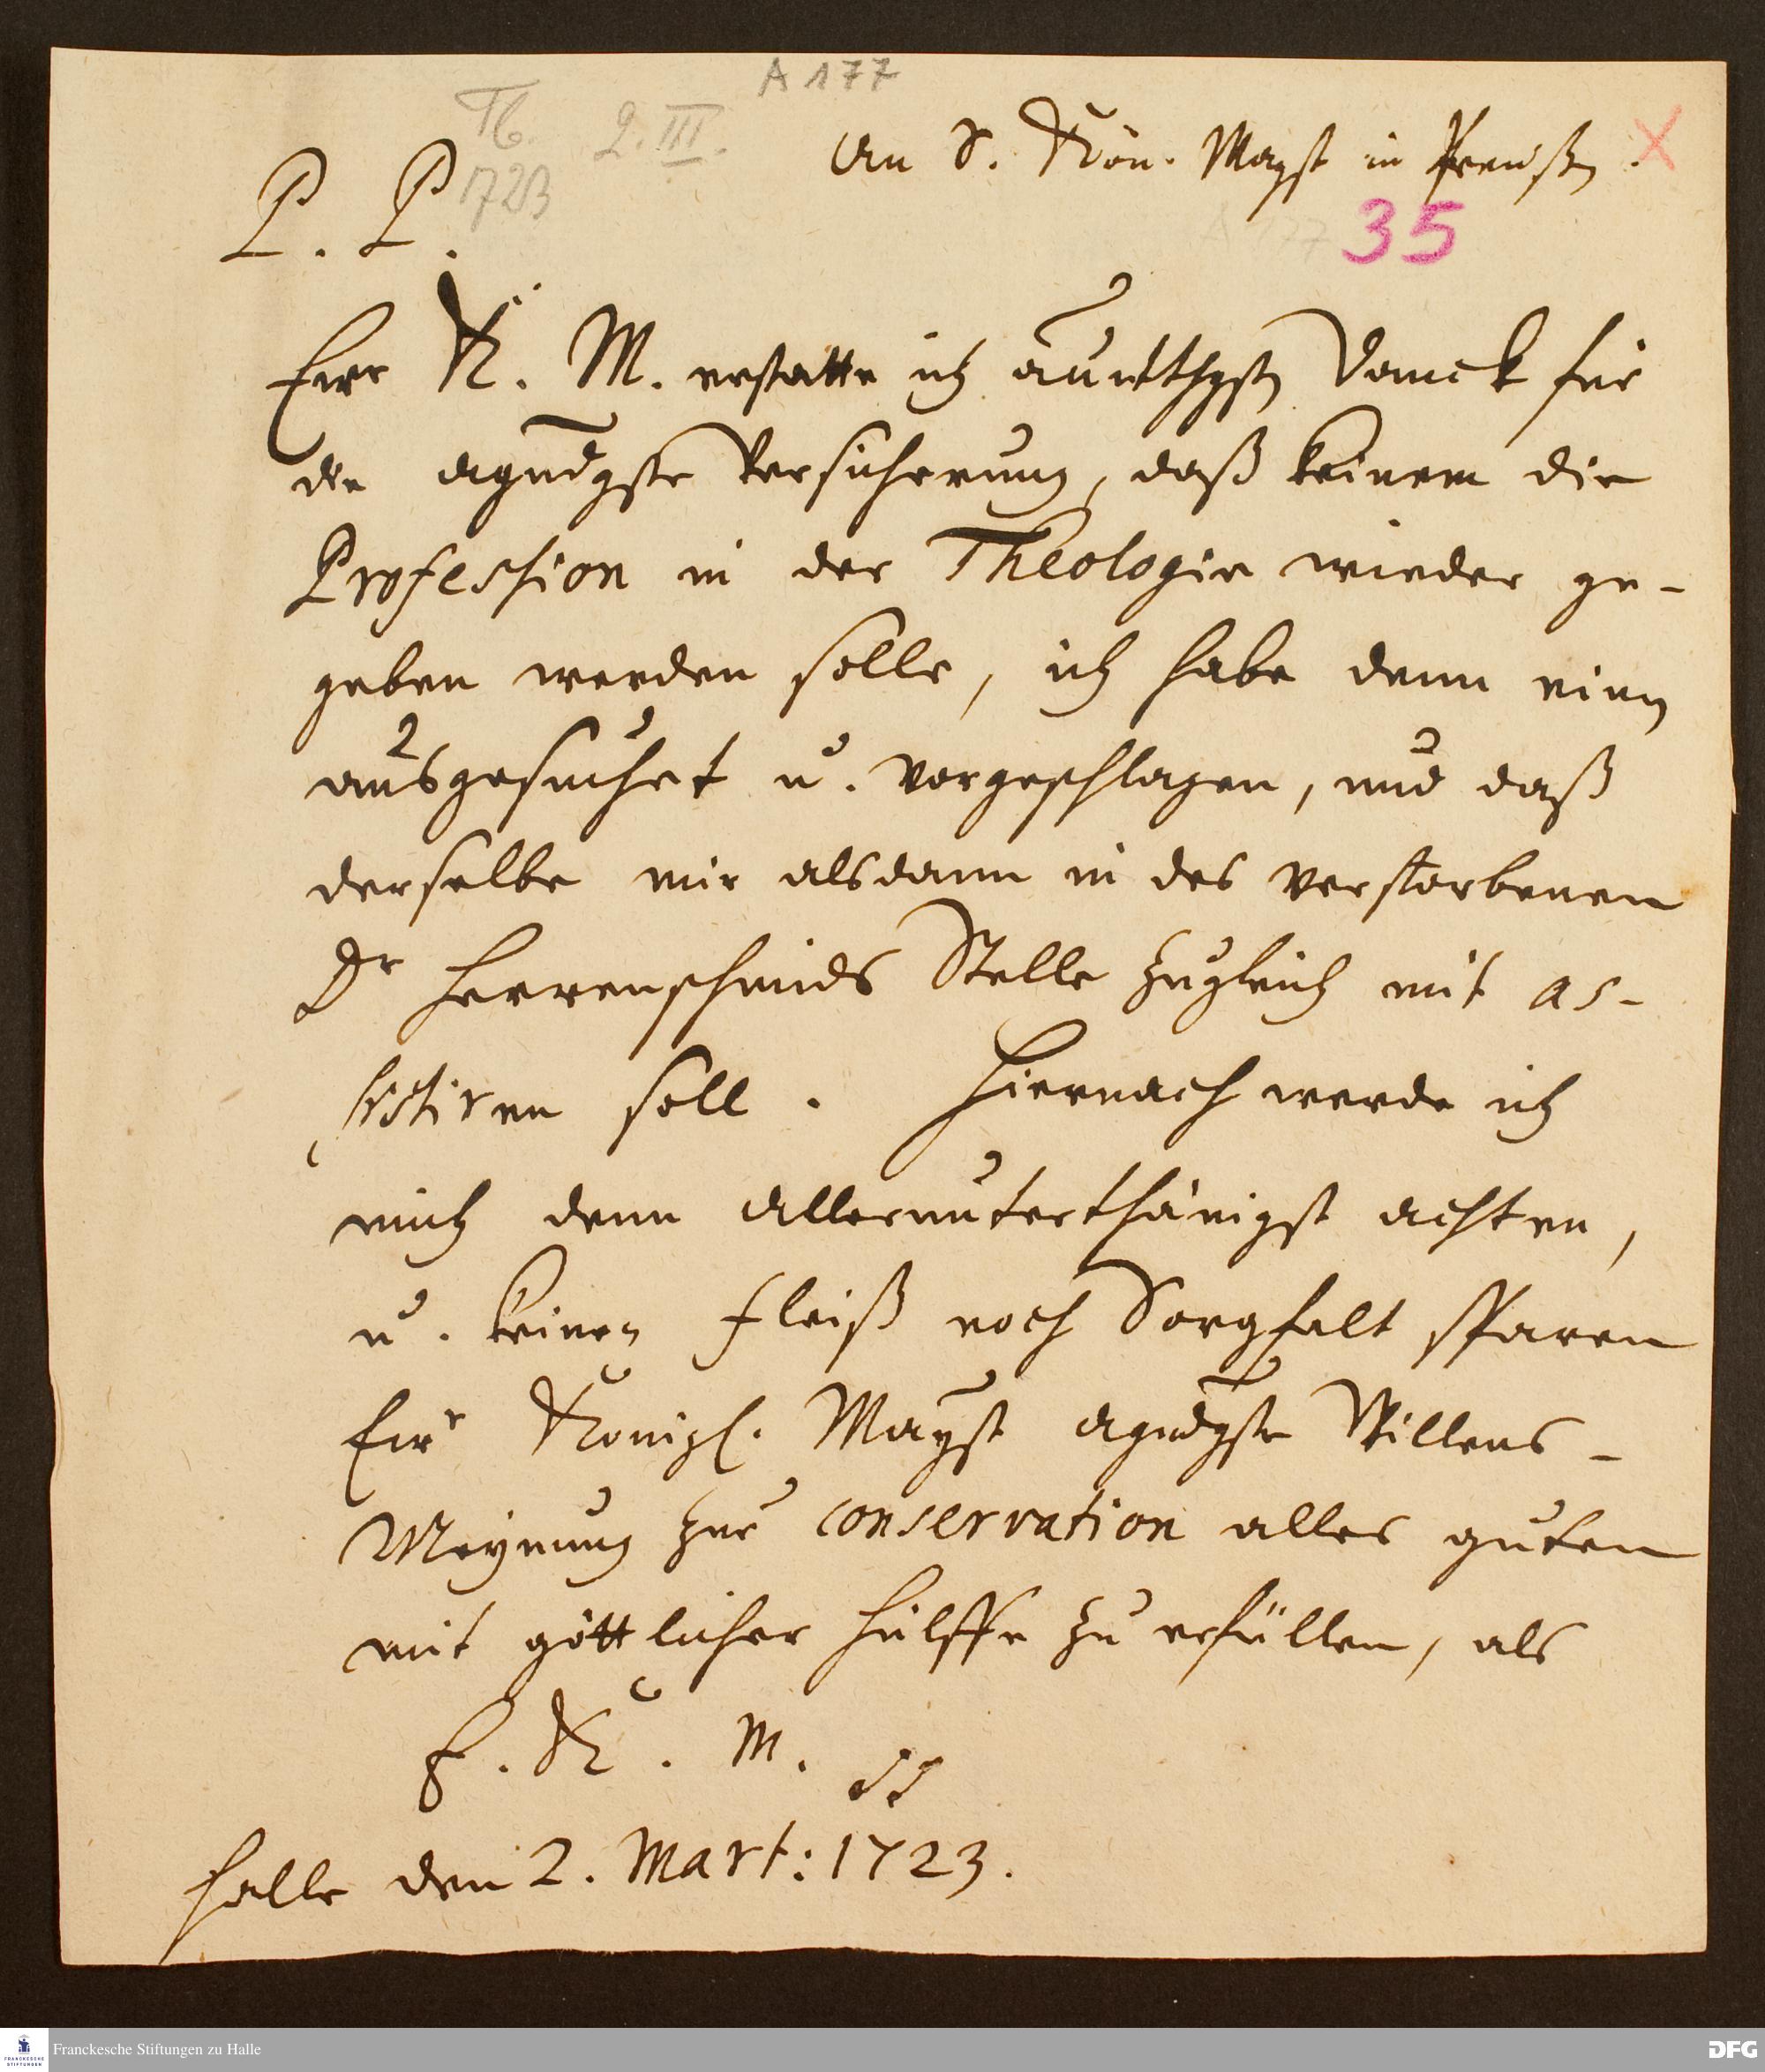 A 177
Tb. 2. III.
1723
An S. Kön. Mayst in Preußen.
P. P.
35
A 177
Ew K. M. erstatte ich aunterthgst Danck für
die agndgste Versicherung, daß keinem die
Profession in der Theologie wieder ge-
geben werden solle, ich habe denn einen
ausgesuchet u. vorgeschlagen, und daß
derselbe mir alsdann in des verstorbenen
Dr Herrenschmids Stelle zugleich mit as-
sistiren soll. Hiernach werde ich
mich denn allerunterthänigst achten,
u. keinen Fleiß noch Sorgfalt sparen
Ew Königl. Mayst agndgste Willens-
Meynung zur conservation alles guten
mit göttlicher Hülffe zu erfüllen, als
E. K. M.
Halle den 2. Mart: 1723.
FRANCKESCHE
STIFTUNGEN
Franckesche Stiftungen zu Halle
DFG